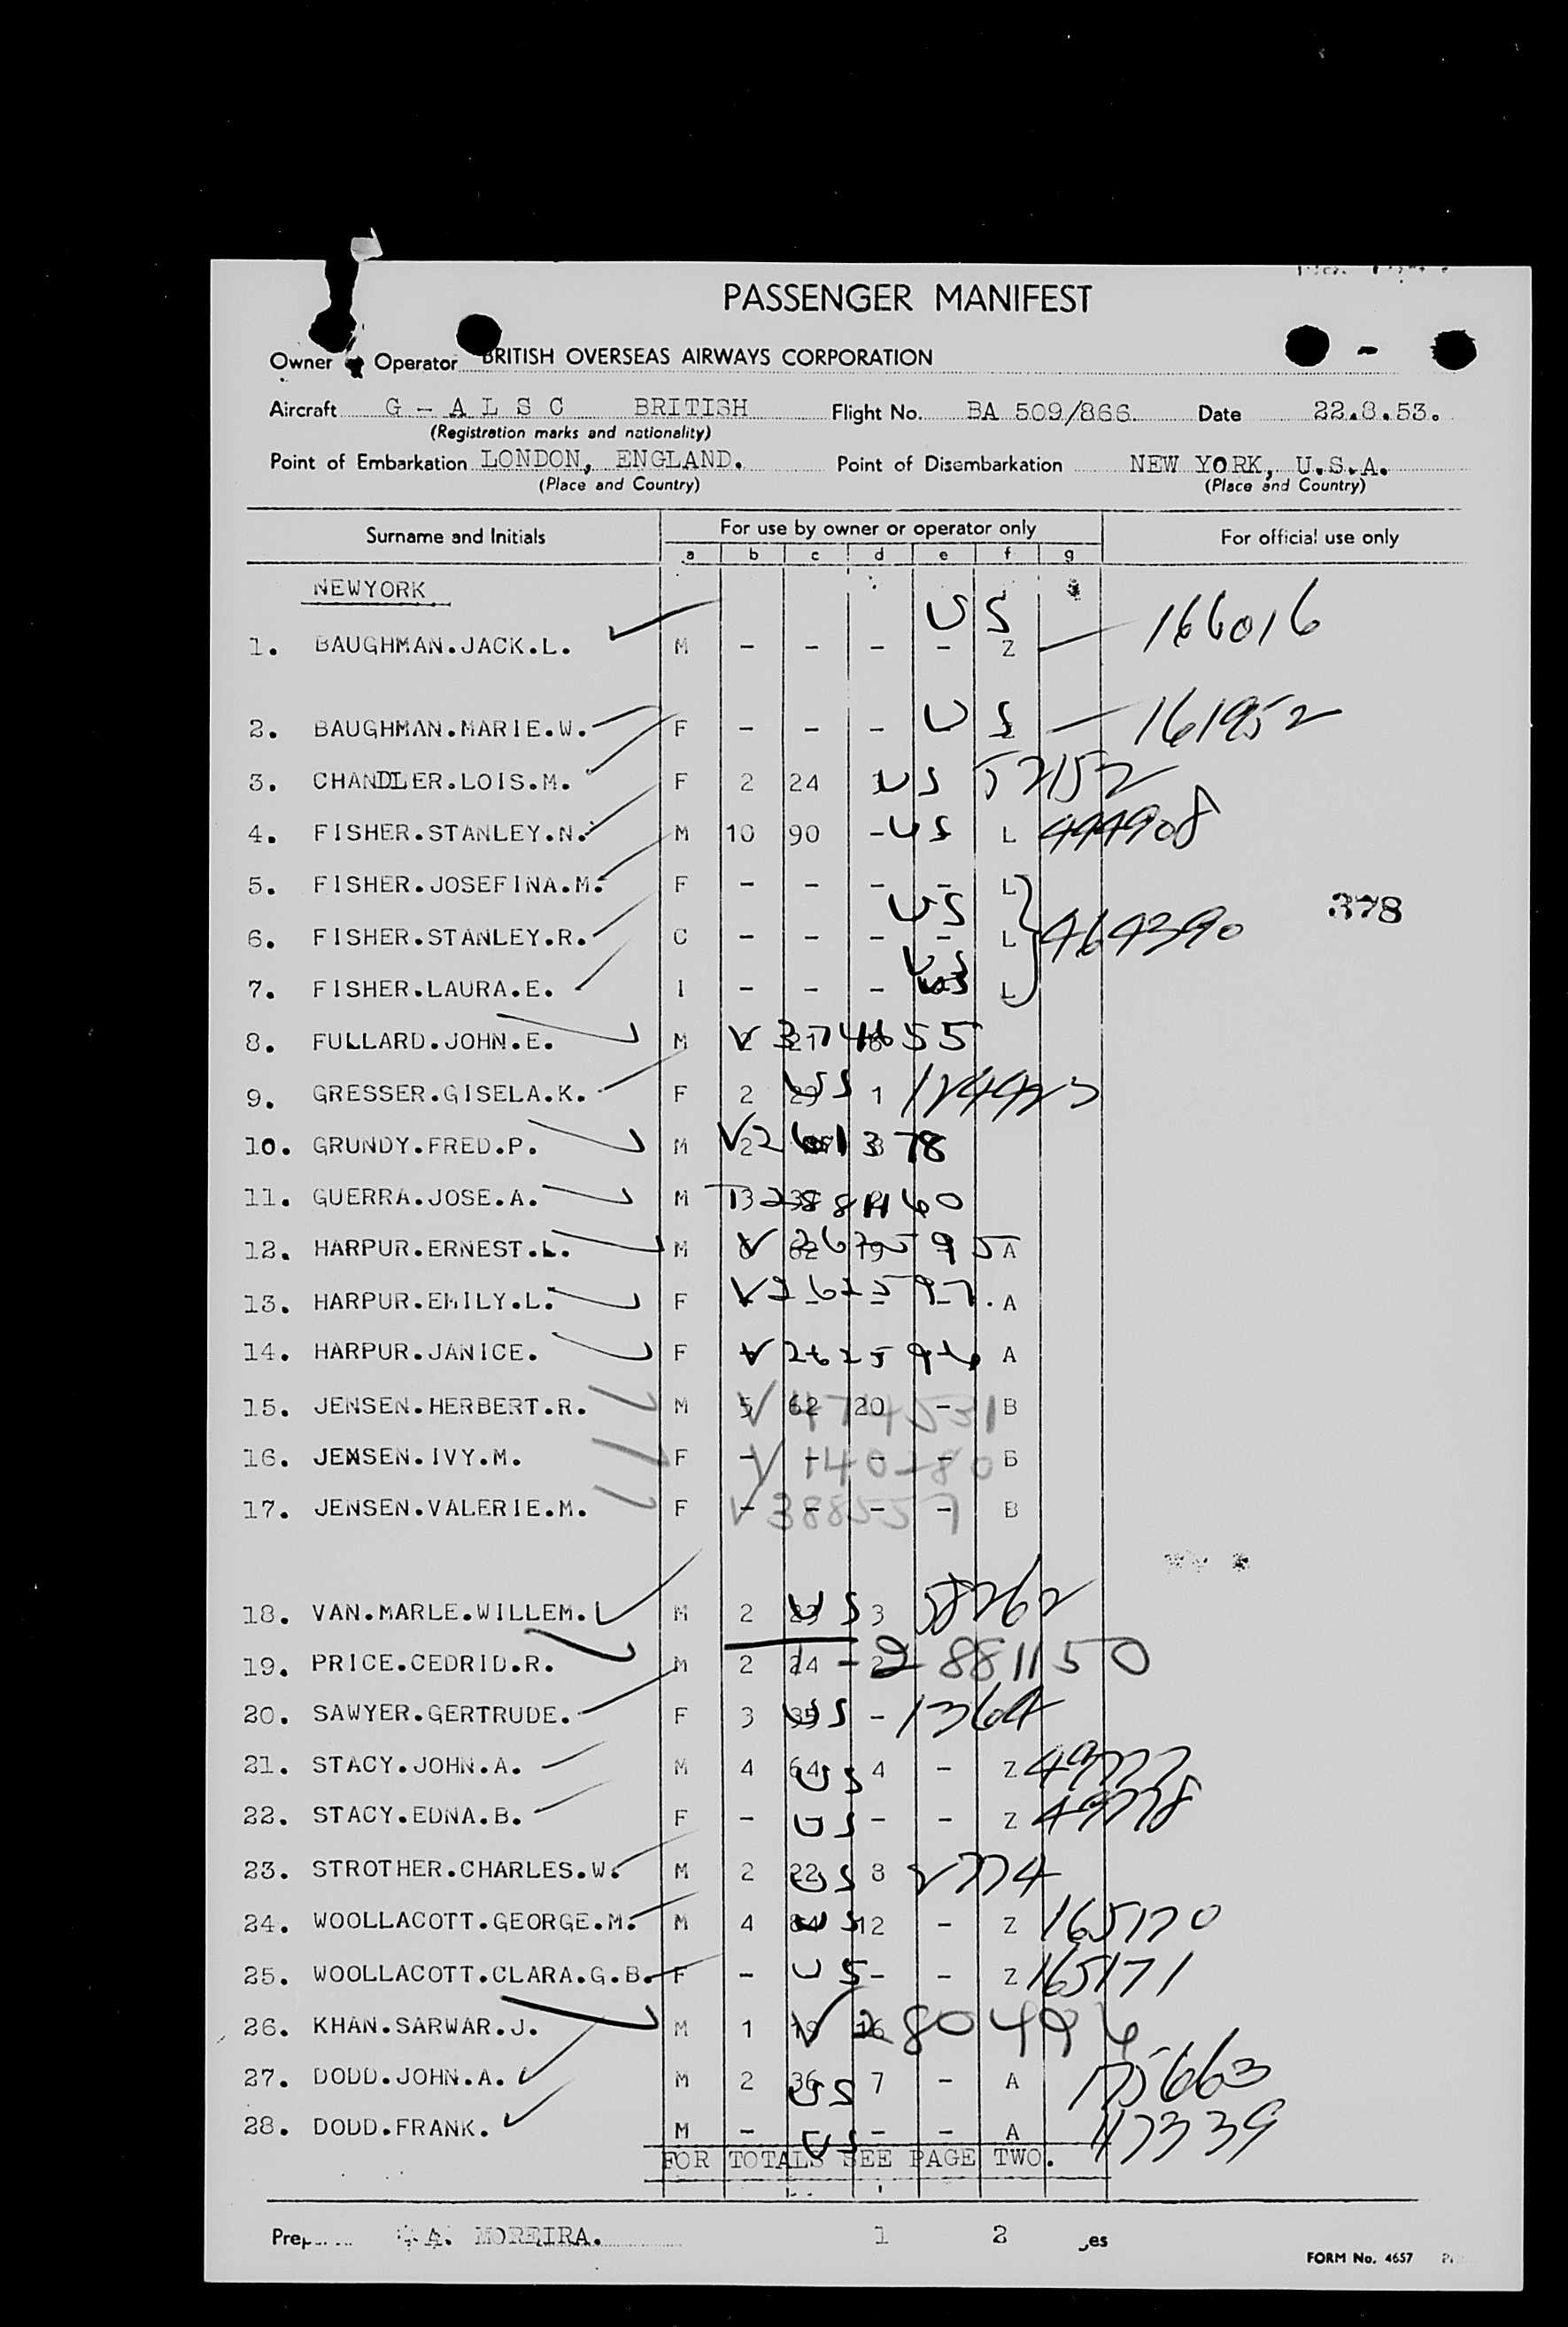 PASSENGER MANIFEST
Owner Operator BRITISH OVERSEAS AIRWAYS CORPORATION
Aircraft G - A L S C BRITISH Flight No. BA 509/866 Date 22.8.53.
(Registration marks and nationality)
Point of Embarkation LONDON, ENGLAND. Point of Disembarkation NEW YORK, U.S.A.
(Place and Country) (Place and Country)
Surname and Initials For use by owner or operator only For official use only
a b c d e f g
NEWYORK
1. BAUGHMAN.JACK.L. M - - - - Z US 166016
2. BAUGHMAN.MARIE.W. F - - - US 161952
3. CHANDLER.LOIS.M. F 2 24 US 52152
4. FISHER.STANLEY.N. M 10 90 - US L 444908
5. FISHER.JOSEFINA.M. F - - - - L US
378
6. FISHER.STANLEY.R. C - - - - L US 464390
7. FISHER.LAURA.E. I - - - US L
8. FULLARD.JOHN.E. M V 3741655
9. GRESSER.GISELA.K. F 2 US 1
10. GRUNDY.FRED.P. M V2601378
11. GUERRA.JOSE.A. M
12. HARPUR.ERNEST.L. M V 2625995 A
13. HARPUR.EMILY.L. F V2625997. A
14. HARPUR.JANICE. F V2625996 A
15. JENSEN.HERBERT.R. M 5 62 20 - B V 474531
16. JENSEN.IVY.M. F - - - - B V 140280
17. JENSEN.VALERIE.M. F - - - - B V 388557
18. VAN.MARLE.WILLEM. M 2 US 3 58262
19. PRICE.CEDRID.R. M 2 24 2 1-2881150
20. SAWYER.GERTRUDE. F 3 US - 1364
21. STACY.JOHN.A. M 4 64 4 - Z US 49777
22. STACY.EDNA.B. F - US - - Z 49778
23. STROTHER.CHARLES.W. M 2 22 8 US 2774
24. WOOLLACOTT.GEORGE.M. M 4 US 12 - Z 165170
25. WOOLLACOTT.CLARA.G.B. F - US - - Z 165171
26. KHAN.SARWAR.J. M 1 19 16 V 2804994
27. DODD.JOHN.A. M 2 36 7 - A US 175663
28. DODD.FRANK. M - US - - A 117339
FOR TOTALS SEE PAGE TWO.
A. MOREIRA. 1 2
FORM No. 4657